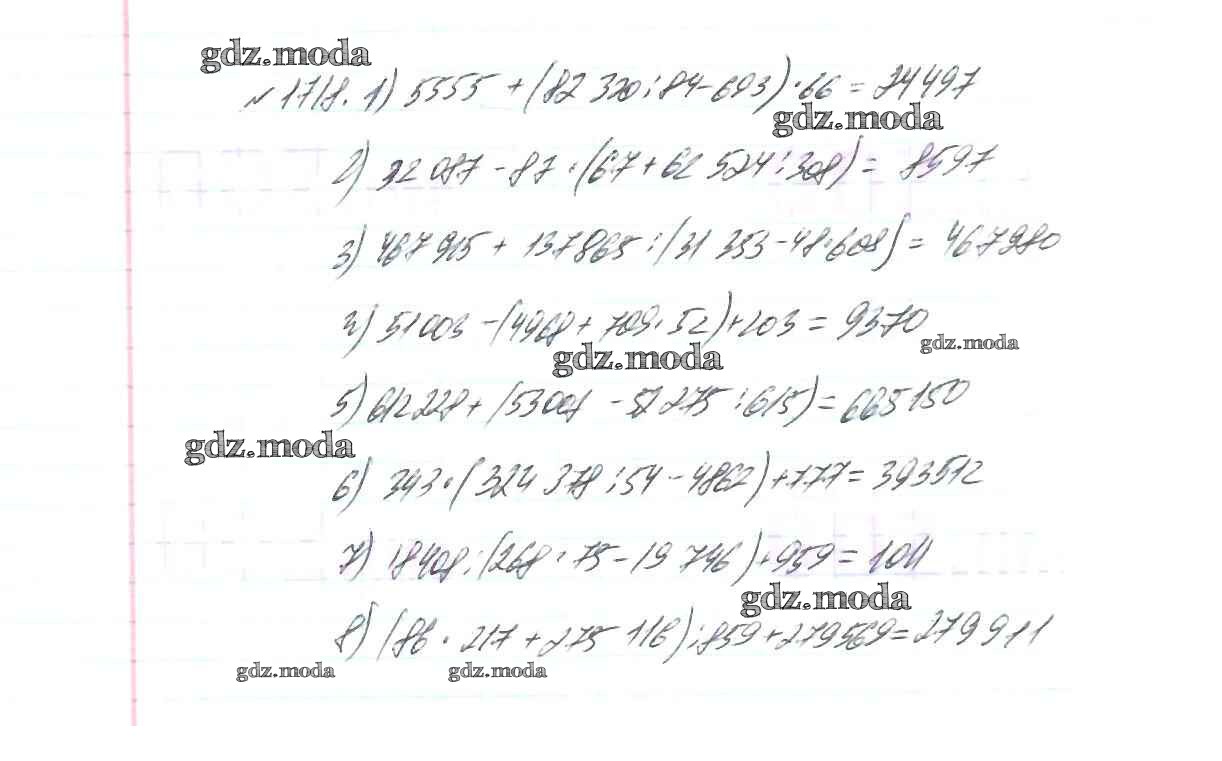 gdz.moda
№ 1718. 1) 5555 + (82 320 : 84 - 693) · 66 = 24497
gdz.moda
2) 32 087 - 87 · (67 + 62 524 : 308) = 8597
3) 467 915 + 137865 : (31 353 - 48 · 608) = 467980
4) 51003 - (4968 + 709 · 52) + 203 = 9370
gdz.moda
gdz.moda
5) 612 228 + (53001 - 51 275 : 615) = 665150
gdz.moda
6) 343 · (324 378 : 54 - 4862) + 777 = 393512
7) 18408 : (268 · 75 - 19 746) + 959 = 1011
gdz.moda
8) (86 · 217 + 275 116) : 859 + 279569 = 279911
gdz.moda
gdz.moda